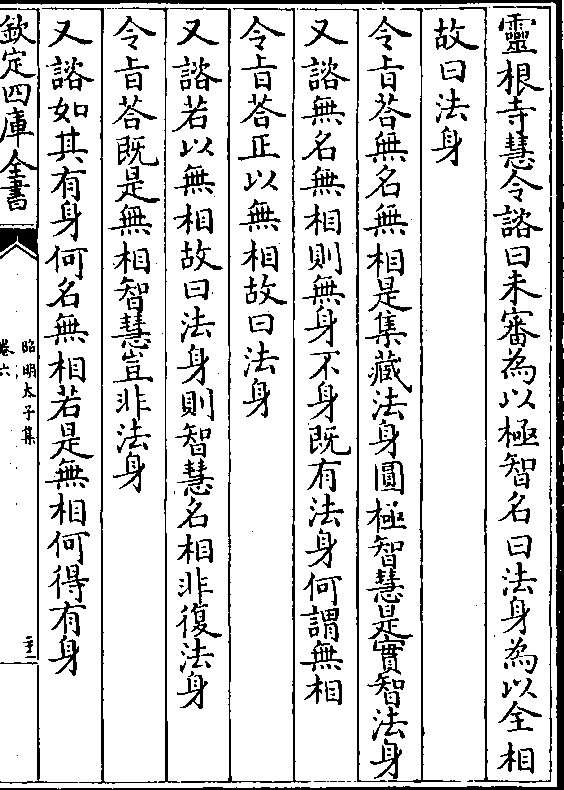 靈根寺慧令諮曰未審為以極智名曰法身為以全相
故曰法身
令旨荅無名無相是集藏法身圓極智慧是實智法身
又諮無名無相則無身不身既有法身何謂無相
令旨荅正以無相故曰法身
又諮若以無相故曰法身則智慧名相非復法身
令旨荅既是無相智慧豈非法身
又諮如其有身何名無相若是無相何得有身
欽定四庫全書
昭明太子集
卷六